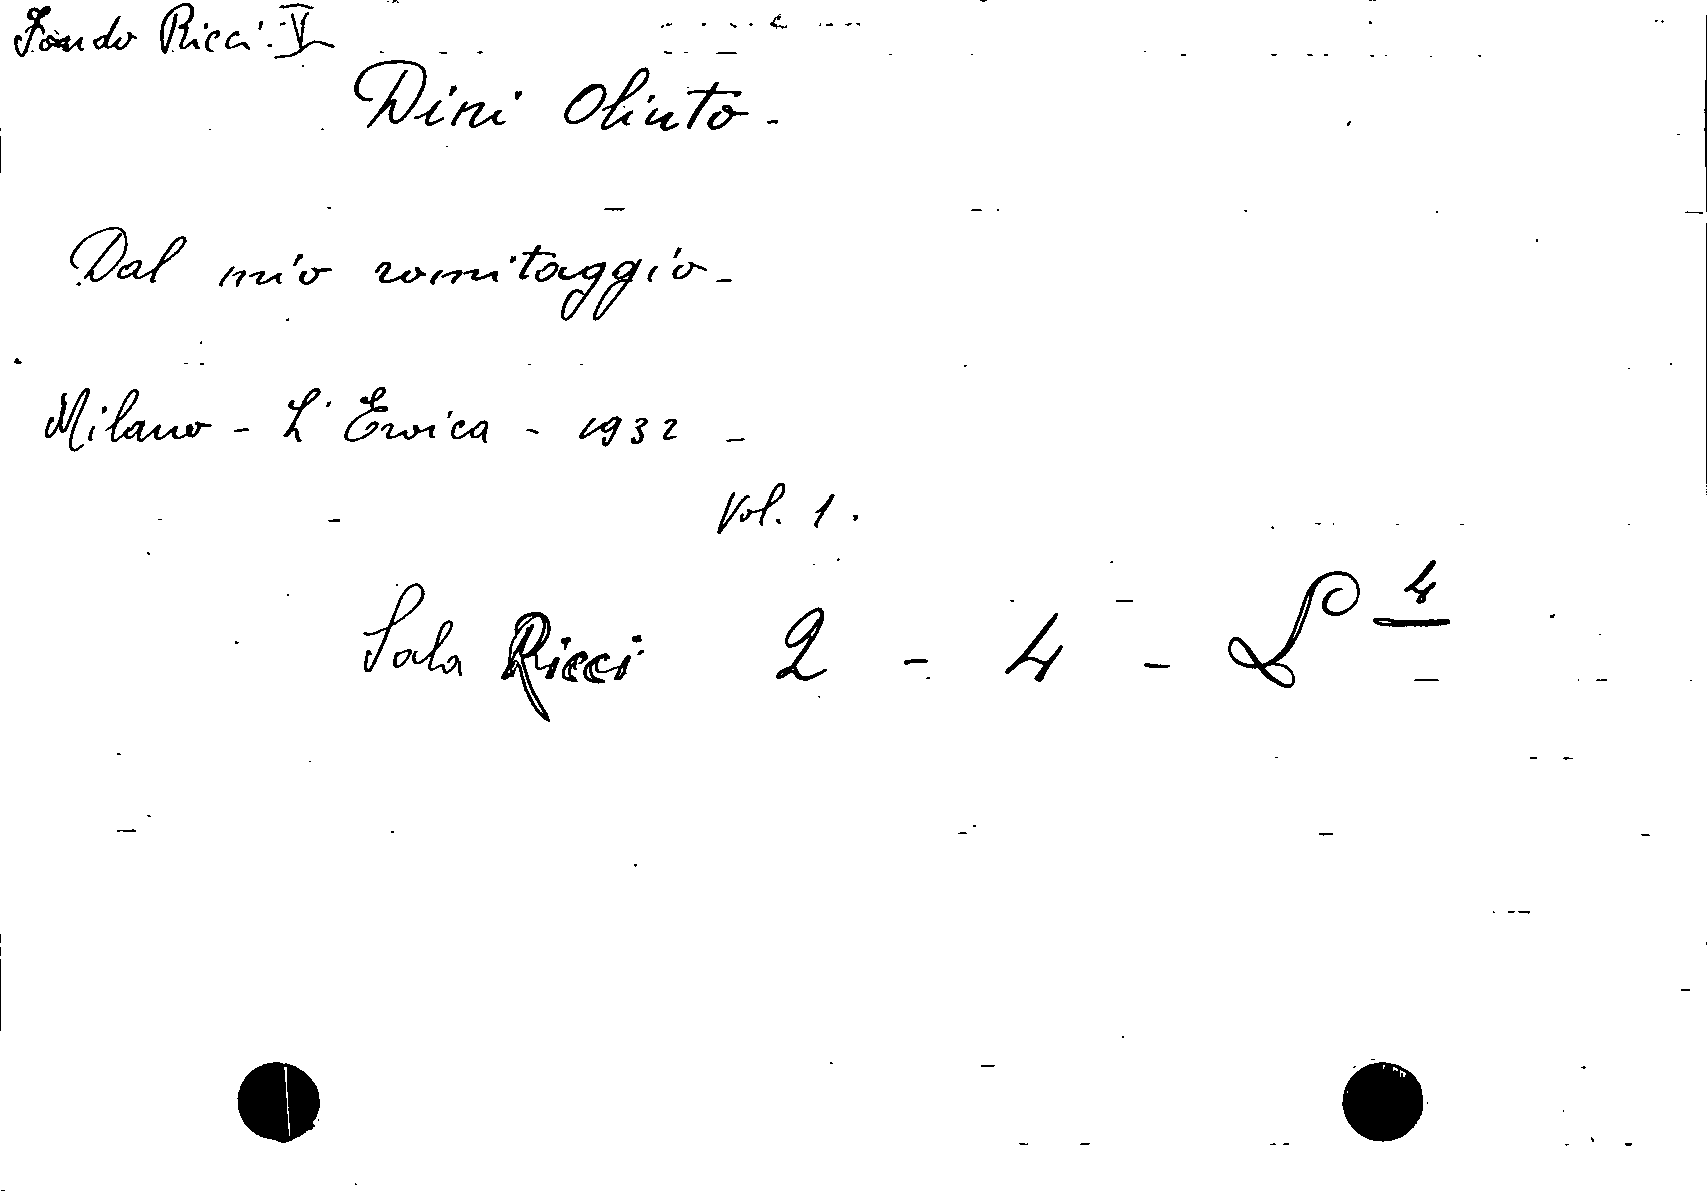 Fondo Ricci. V
Dini Olinto -
Dal mio romitaggio -
Milano - L'Eroica - 1932 -
Vol. 1.
Sala Ricci 2 - 4 - L 4